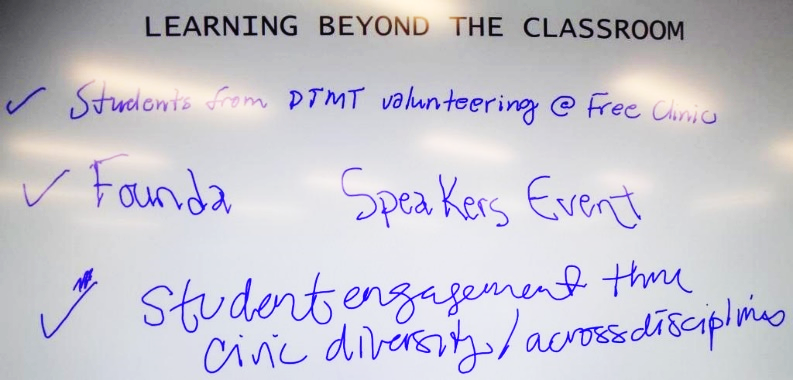 LEARNING BEYOND THE CLASSROOM
✓ Students from DTMT volunteering @ Free Clinic
✓ Founda Speakers Event
✓ Student engagement thru
civic diversity / across disciplines